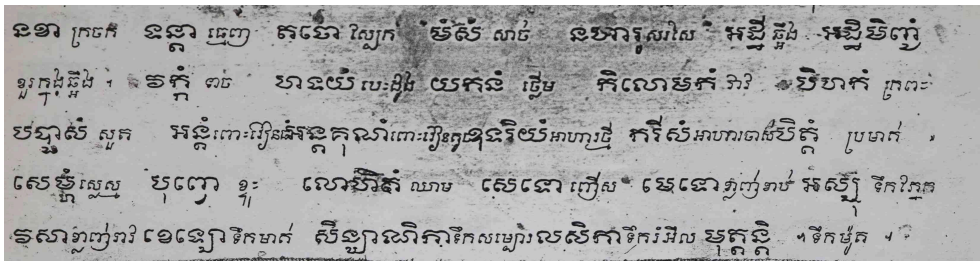 នខា ក្រចក ទន្តា ធ្មេញ តចោ ស្បែក មំសំ សាច់ នហារូ សរសៃ អដ្ឋី ឆ្អឹង អដ្ឋិមិញ្ជំ
ខួរក្នុងឆ្អឹង ។ វក្កំ ទាច ហទយំ បេះដូង យកនំ ថ្លើម កិលោមកំ វាវ បិហកំ ក្រពះ
បប្ផាសំ សួត អន្តំ ពោះវៀនធំ អន្តគុណំ ពោះវៀនតូច ឧទរិយំ អាហារថ្មី ករីសំ អាហារចាស់ បិត្តំ ប្រមាត់ ។
សេម្ហំ ស្លេស្ម បុព្វោ ខ្ទុះ លោហិតំ ឈាម សេទោ ញើស មេទោ ខ្លាញ់ខាប់ អស្សុ ទឹកភ្នែក
វសា ខ្លាញ់រាវ ខេឡោ ទឹកមាត់ សិង្ឃាណិកា ទឹកសម្បោរ លសិកា ទឹករំអិល មុត្តន្តិ ។ ទឹកម៉ូត្រ ។